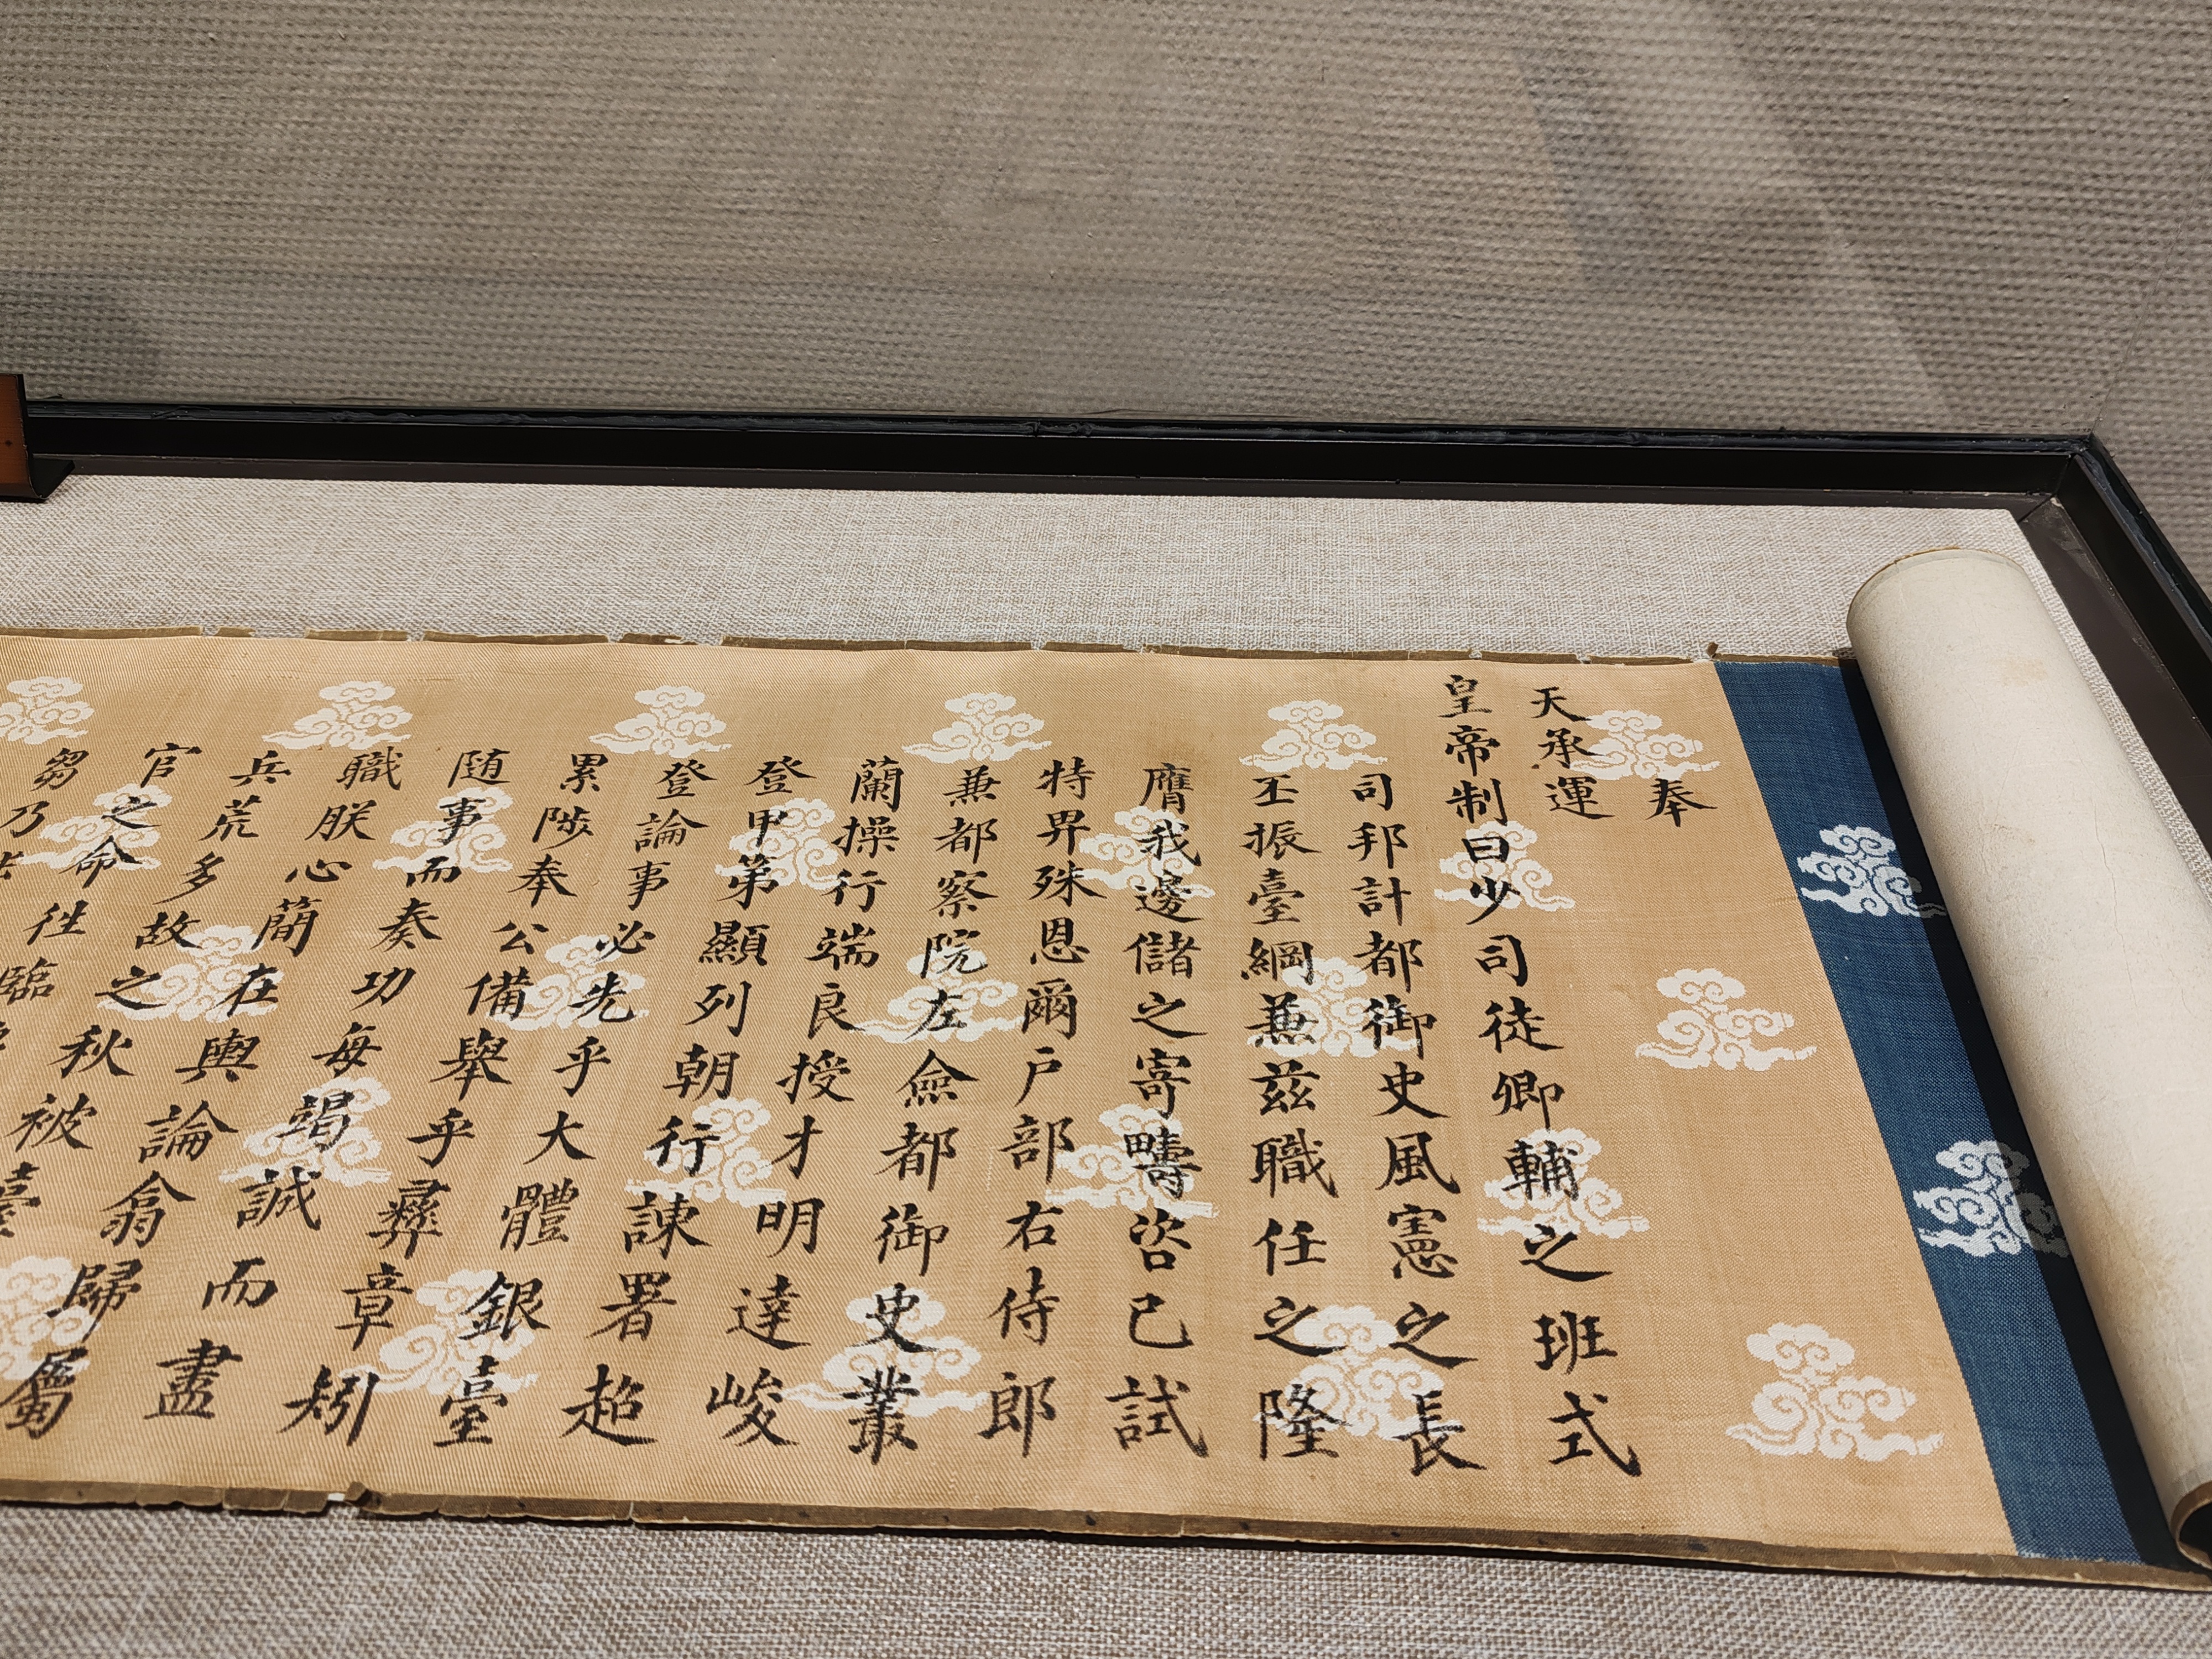 奉
天承運
皇帝制曰少司徒卿輔之班式
司邦計都御史風憲之長
丕振臺綱兼茲職任之隆
膺我邊儲之寄疇咨已試
特畀殊恩爾戶部右侍郎
兼都察院左僉都御史叢
蘭操行端良授才明達峻
登甲第顯列朝行諫署超
登論事必先乎大體銀臺
累陟奉公備舉乎彞章矧
随事而奏功每竭誠而盡
職朕心簡在輿論翕歸屬
兵荒多故之秋被
官之命徃臨
芻乃